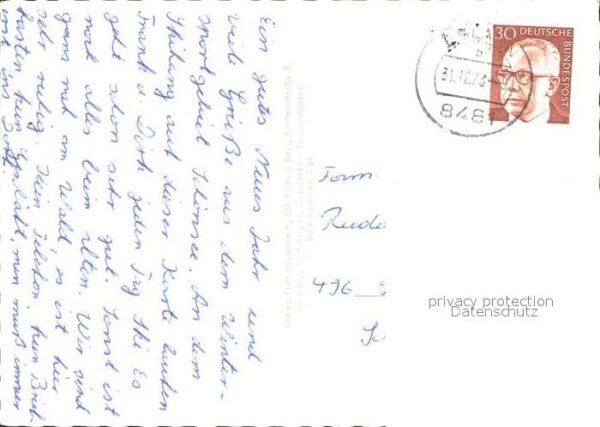 Ein gutes Neues Jahr und
viele Grüße aus dem Winter-
sportgebiet Schönsee. An dem
Skihang auf dieser Karte laufen
Frank u. Dirk jeden Tag Ski Es
geht schon sehr gut. Sonst ist
noch alles beim alten. Wir sind
ganz nah am Wald, es ist hier
sehr ruhig. Kein Telefon, kein Brief-
kasten kein man muß immer
ins Dorf.
Verlag Fritz 85
Fam.
496
30 DEUTSCHE
BUNDESPOST
31.12.73
8481
privacy protection
Datenschutz